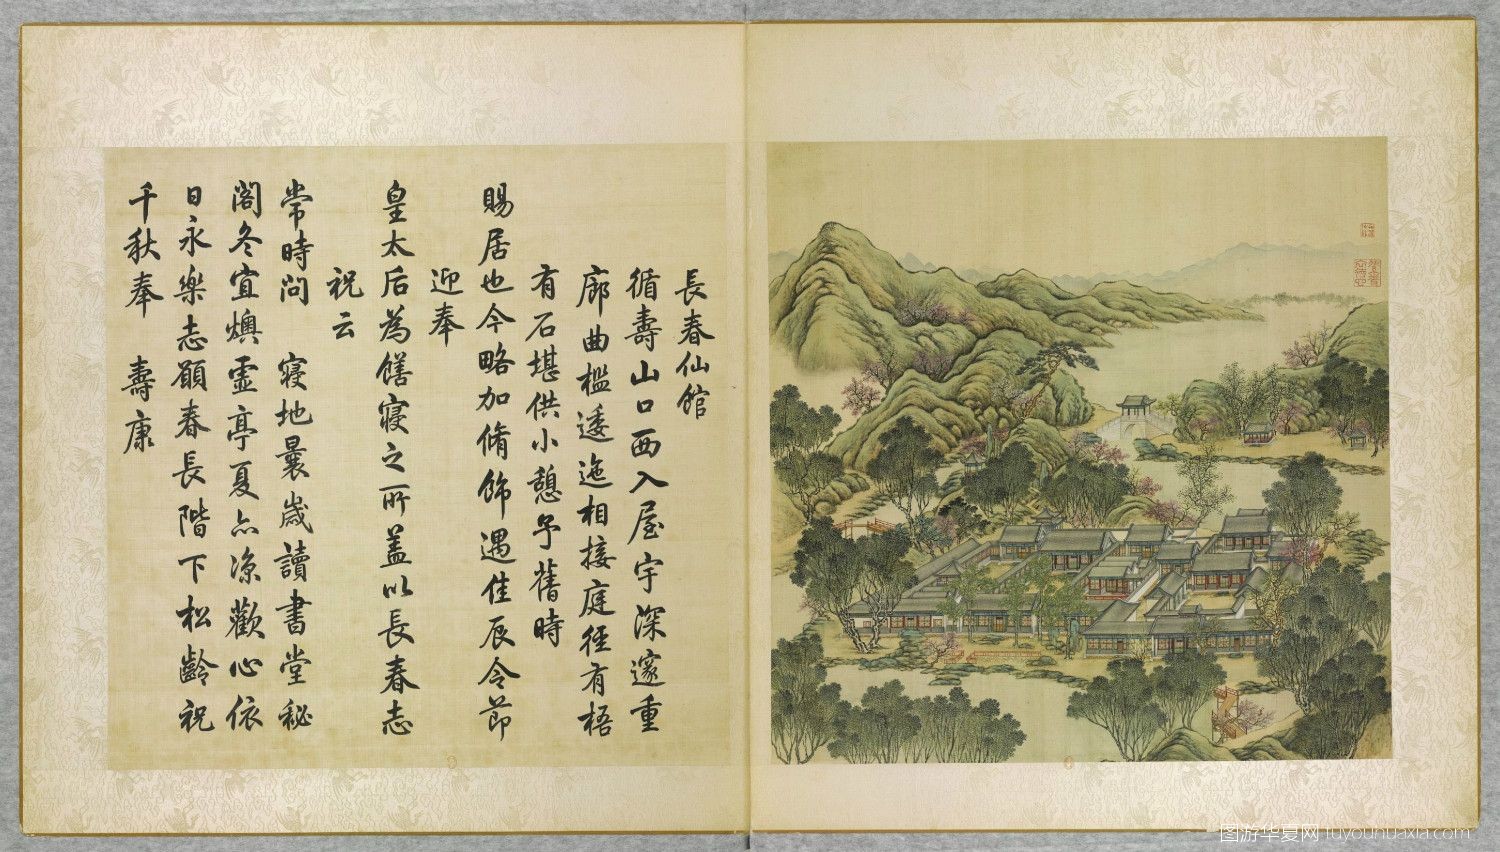 長春仙館
循壽山口西入屋宇深邃重
廊曲檻逶迤相接庭徑有梧
有石堪供小憩予舊時
賜居也今略加脩飾遇佳辰令節
迎奉
皇太后為膳寢之所蓋以長春志
祝云
常時問 寢地曩歲讀書堂秘
閣冬宜燠虛亭夏亦涼歡心依
日永樂志願春長階下松齡祝
千秋奉 壽康
图游华夏网 tuyouhuaxia.com